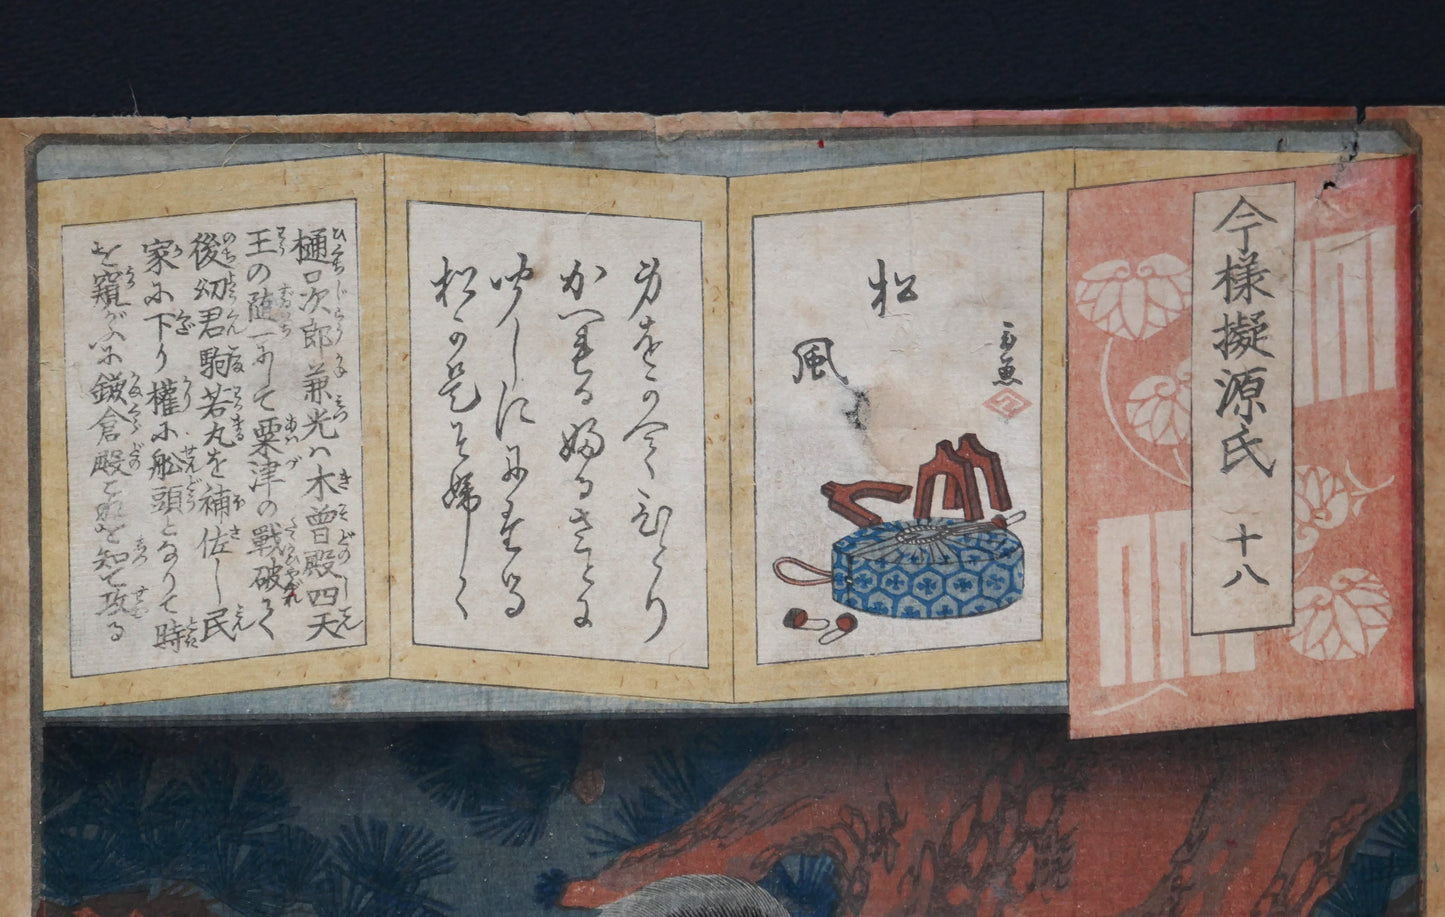 今様擬源氏
十八
松
風
玉魚
身をかへてひとり
かへれる婦るさとに
聞しに似たる
松かぜぞ婦く
樋口次郎兼光ハ木曽殿四天
王の随一にして粟津の戦破て
後幼君駒若丸を補佐し民
家に下り權に舩頭となりて時
を窺がふに鎌倉殿を知て攻る